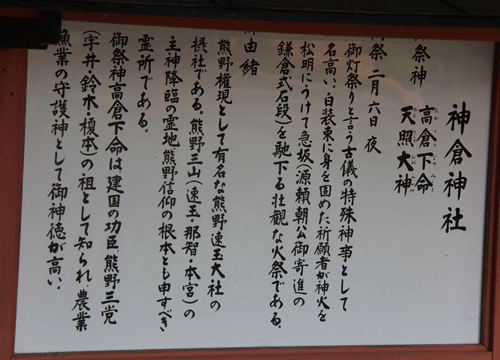 神倉神社
祭神 高倉下命
天照大神
祭 二月六日夜
御灯祭りと言う古儀の特殊神事として
名高い、白装束に身を固めた祈願者が神火を
松明にうけて急坂(源頼朝公御寄進の
鎌倉式石段)を馳下る壮観な火祭である。
由緒
熊野権現として有名な熊野速玉大社の
摂社である。熊野三山(速玉・那智・本宮)の
主神降臨の霊地熊野信仰の根本とも申すべき
霊所である。
御祭神高倉下命は建国の功臣熊野三党
(宇井・鈴木・榎本)の祖として知られ、農業
漁業の守護神として御神徳が高い。